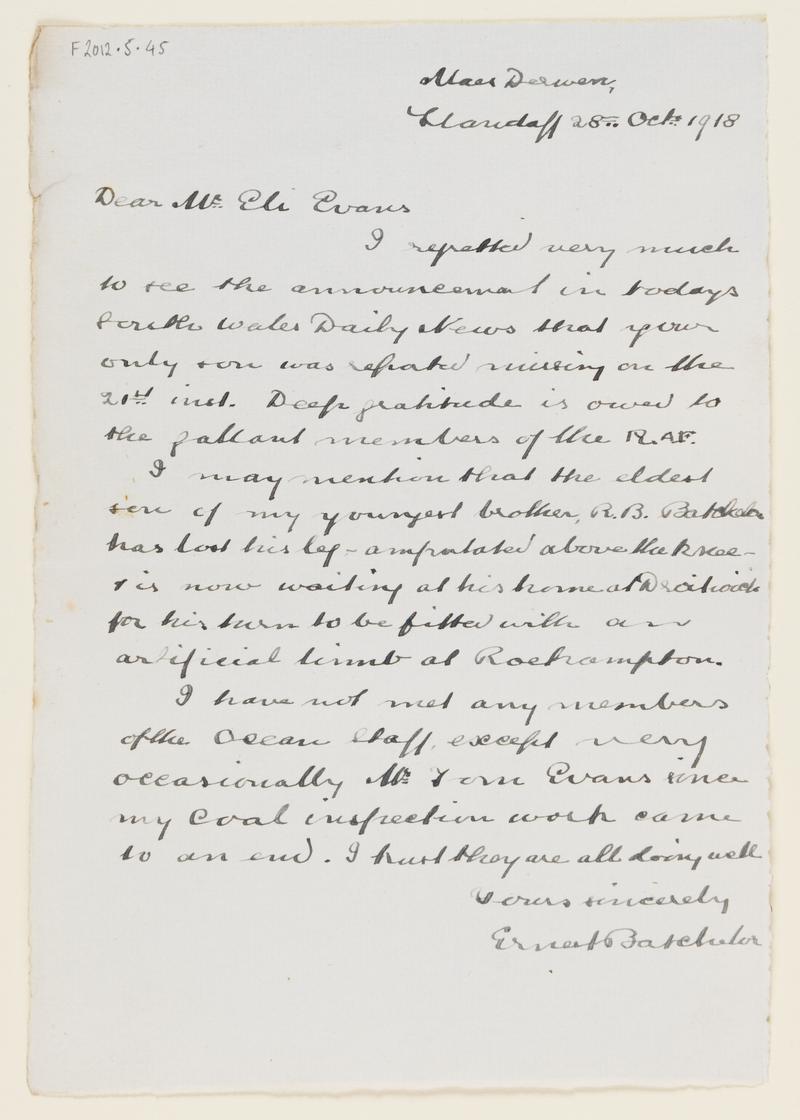 F2012.5.45
Maes Derwen,
Llandaff 28th Oct: 1918
Dear Mr. Eli Evans
I regretted very much
to see the announcement in todays
South Wales Daily News that your
only son was reported missing on the
21st inst. Deep gratitude is owed to
the gallant members of the R.A.F.
I may mention that the eldest
son of my youngest brother, R.B. Batchelor
has lost his leg - amputated above the knee -
& is now waiting at his home at Droitwich
for his turn to be fitted with an
artificial limb at Roehampton.
I have not met any members
of the Ocean Staff, except very
occasionally Mr. Tom Evans since
my Coal inspection work came
to an end. I trust they are all doing well
Yours sincerely
Ernest Batchelor